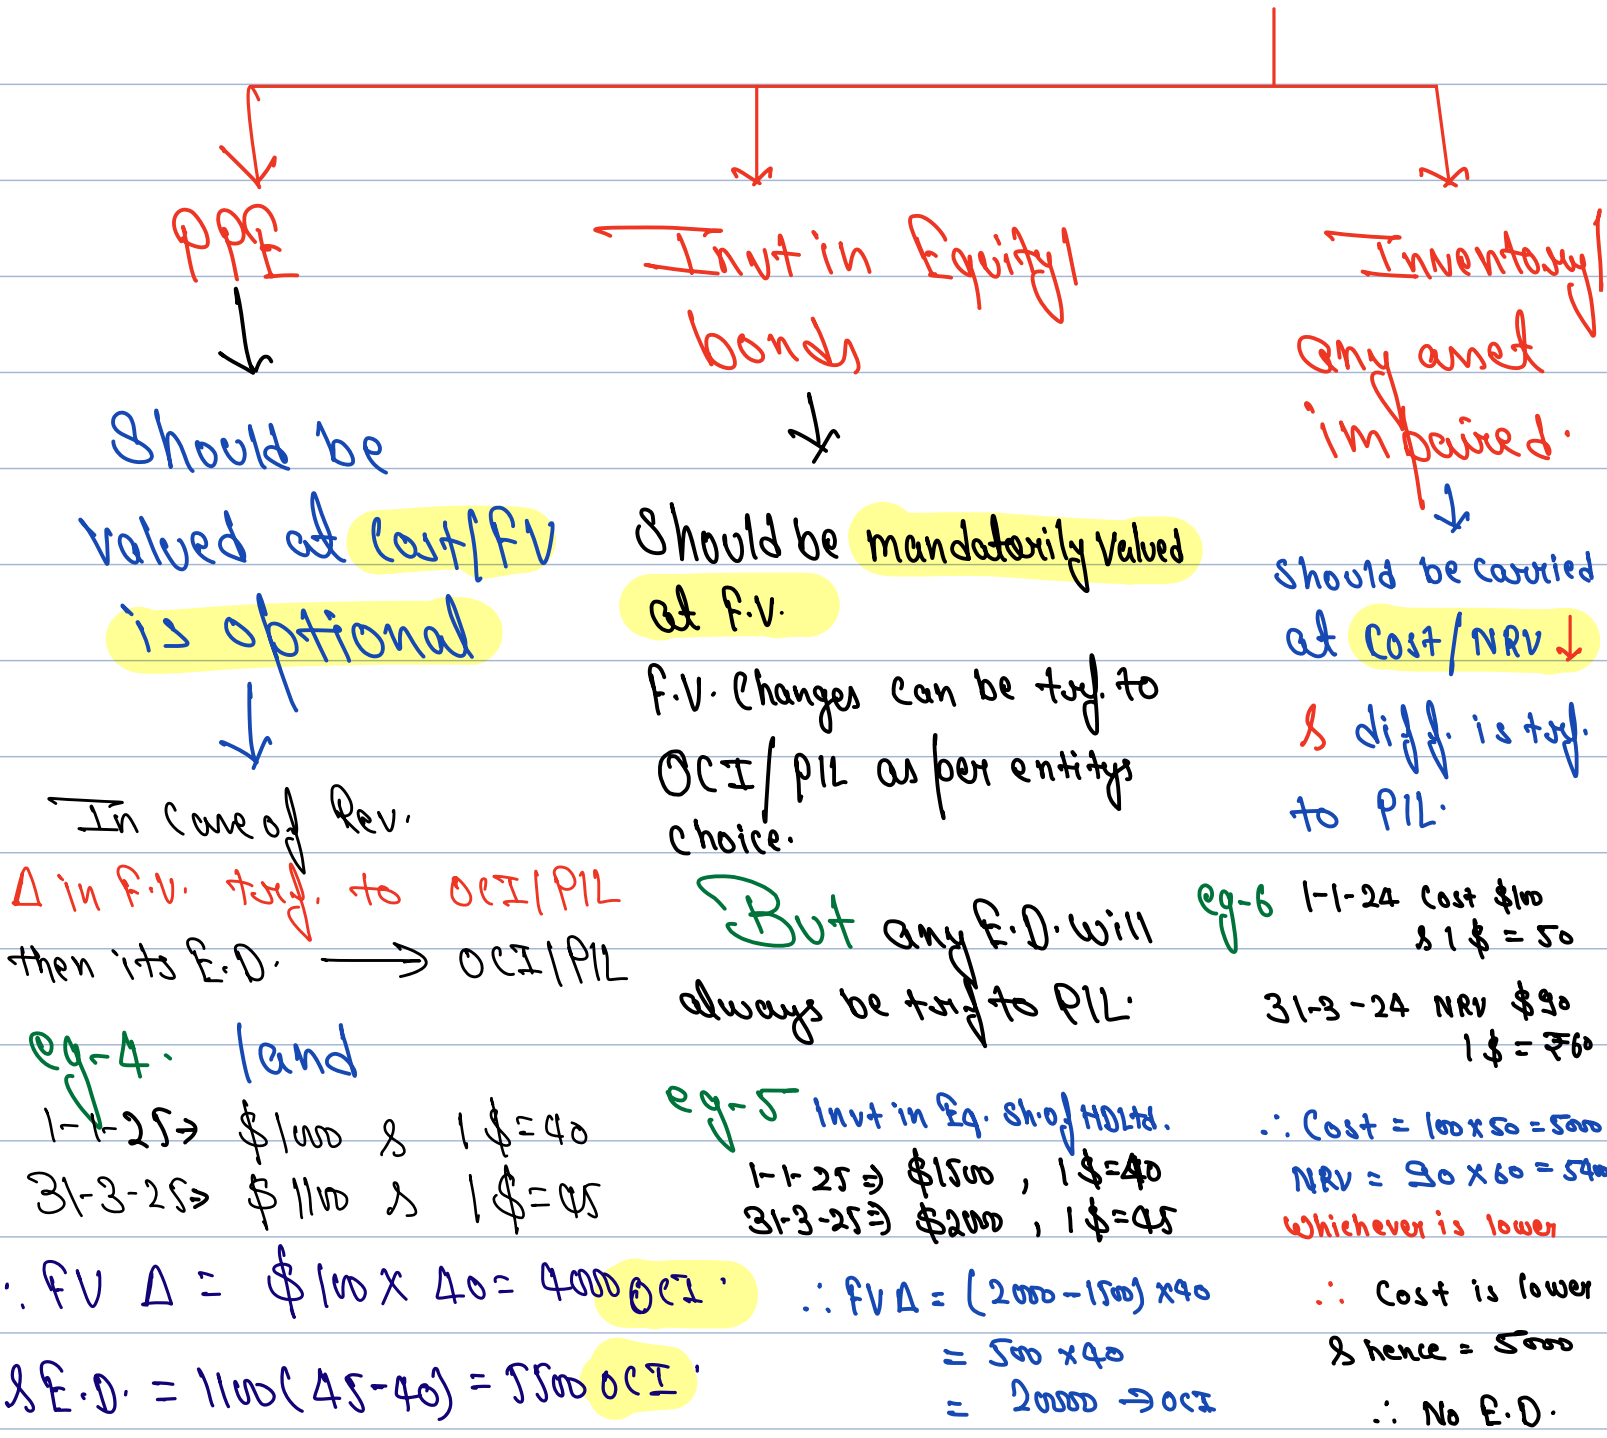 PPE
Should be
valued at Cost/FV
is optional
In case of Rev.
Δ in F.V. trf. to OCI/P/L
then its E.D. → OCI/P/L
eg-4. land
1-1-25→ $1000 & 1$=40
31-3-25→ $1100 & 1$=45
∴ FV Δ = $100 × 40 = 4000 OCI.
& E.D. = 1100(45-40) = 5500 OCI.
Invt in Equity/
bonds
Should be mandatorily valued
at F.V.
F.V. Changes can be trf. to
OCI/P/L as per entitys
choice.
But any E.D. will
always be trf to P/L.
eg-5 Invt in Eq. Sh. of HDLtd.
1-1-25⇒ $1500, 1$=40
31-3-25⇒ $2000, 1$=45
∴ FVΔ = (2000-1500) ×40
= 500 ×40
= 20000 → OCI
Inventory/
any asset
impaired.
should be carried
at Cost/NRV ↓
& diff. is trf.
to P/L.
eg-6 1-1-24 Cost $100
& 1$ = 50
31-3-24 NRV $90
1$ = ₹60
∴ Cost = 100×50 = 5000
NRV = 90 ×60 = 5400
Whichever is lower
∴ Cost is lower
& hence = 5000
∴ No E.D.